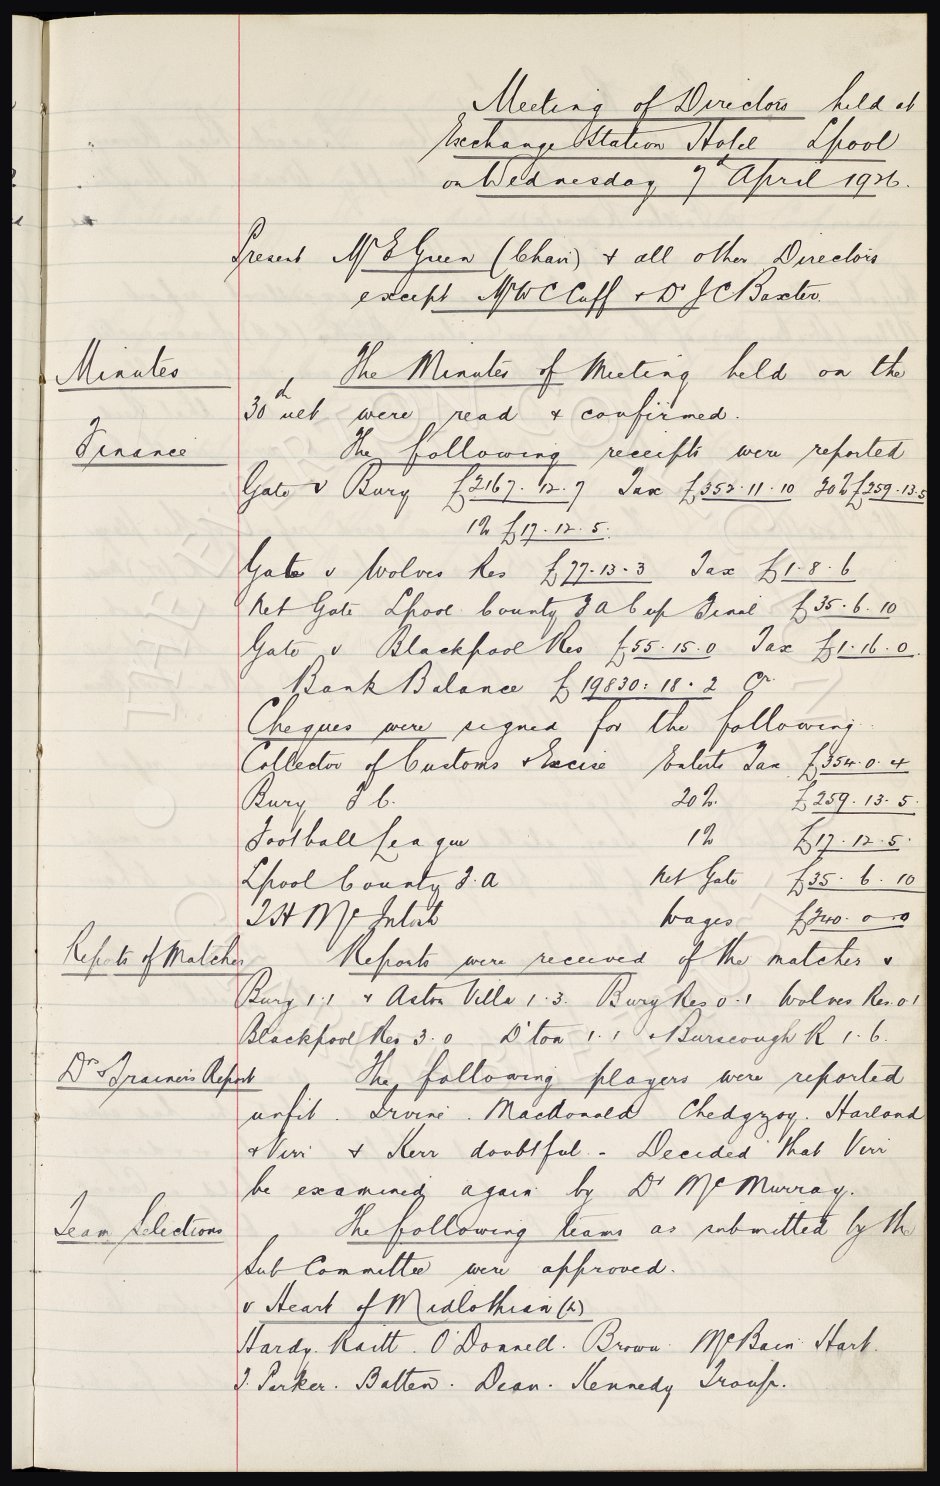 Meeting of Directors held at
Exchange Station Hotel Lpool
on Wednesday 7th April 1926.
Present Mr E Green (Chair) & all other Directors
except Mr W C Cuff & Dr J C Baxter.
Minutes The Minutes of Meeting held on the
30th ult were read & confirmed.
Finance The following receipts were reported
Gate v Bury £2167. 12. 7 Tax £352. 11. 10 20% £259. 13. 5
1% £17. 12. 5.
Gate v Wolves Res £77. 13. 3 Tax £1. 8. 6
Net Gate Lpool County F A Cup Final £35. 6. 10
Gate v Blackpool Res £55. 15. 0 Tax £1. 16. 0.
Bank Balance £19830: 18. 2 Cr
Cheques were signed for the following
Collector of Customs & Excise Entert Tax £354. 0. 4
Bury F C. 20% £259. 13. 5.
Football League 1% £17. 12. 5.
Lpool County F. A Net Gate £35. 6. 10
T H McIntosh Wages £340. 0. 0
Reports of Matches Reports were received of the matches v
Bury 1.1 & Aston Villa 1.3. Bury Res 0.1 Wolves Res. 0.1
Blackpool Res 3.0 D'ton 1.1 & Burscough R 1.6.
Drs & Trainers Report The following players were reported
unfit. Irvine. MacDonald Chedgzoy. Harland
& Virr & Kerr doubtful. - Decided that Virr
be examined again by Dr McMurray.
Team Selections The following teams as submitted by the
Sub Committee were approved.
v Heart of Midlothian (h)
Hardy. Raitt. O'Donnell. Brown. McBain Hart.
J. Parker. Batten. Dean. Kennedy Troup.
THE EVERTON